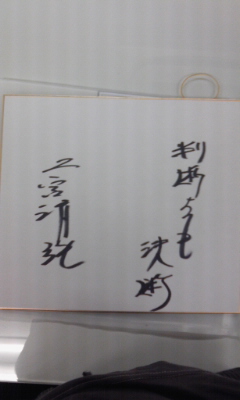 判断よりも
決断
二宮清純